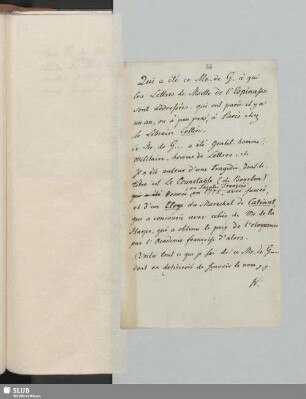 Qui a été ce Mr. de G. à qui
les Lettres de Miselle de l'Espinasse
sont addressées, qui ont paru il y a
un an, ou à peu près, à Paris chez
le Libraire Collin.
Ce Mr de G... a été gentil-homme,
militaire, homme de Lettres, et
il a été auteur d'une Tragédie dont le
titre est le Connetable (de Bourbon)
en 1775. avec succès,
et d'un Eloge du Marechal de Catinat,
qui a concouru avec celui de Mr de la
Harpe, qui a obtenu le prix de l'éloquence
par l'Academie françoise d'alors.
(Voila tout ce que je sai de ce Mr. de G...
dont on desireroit de sçavoir le nom.
SLUB